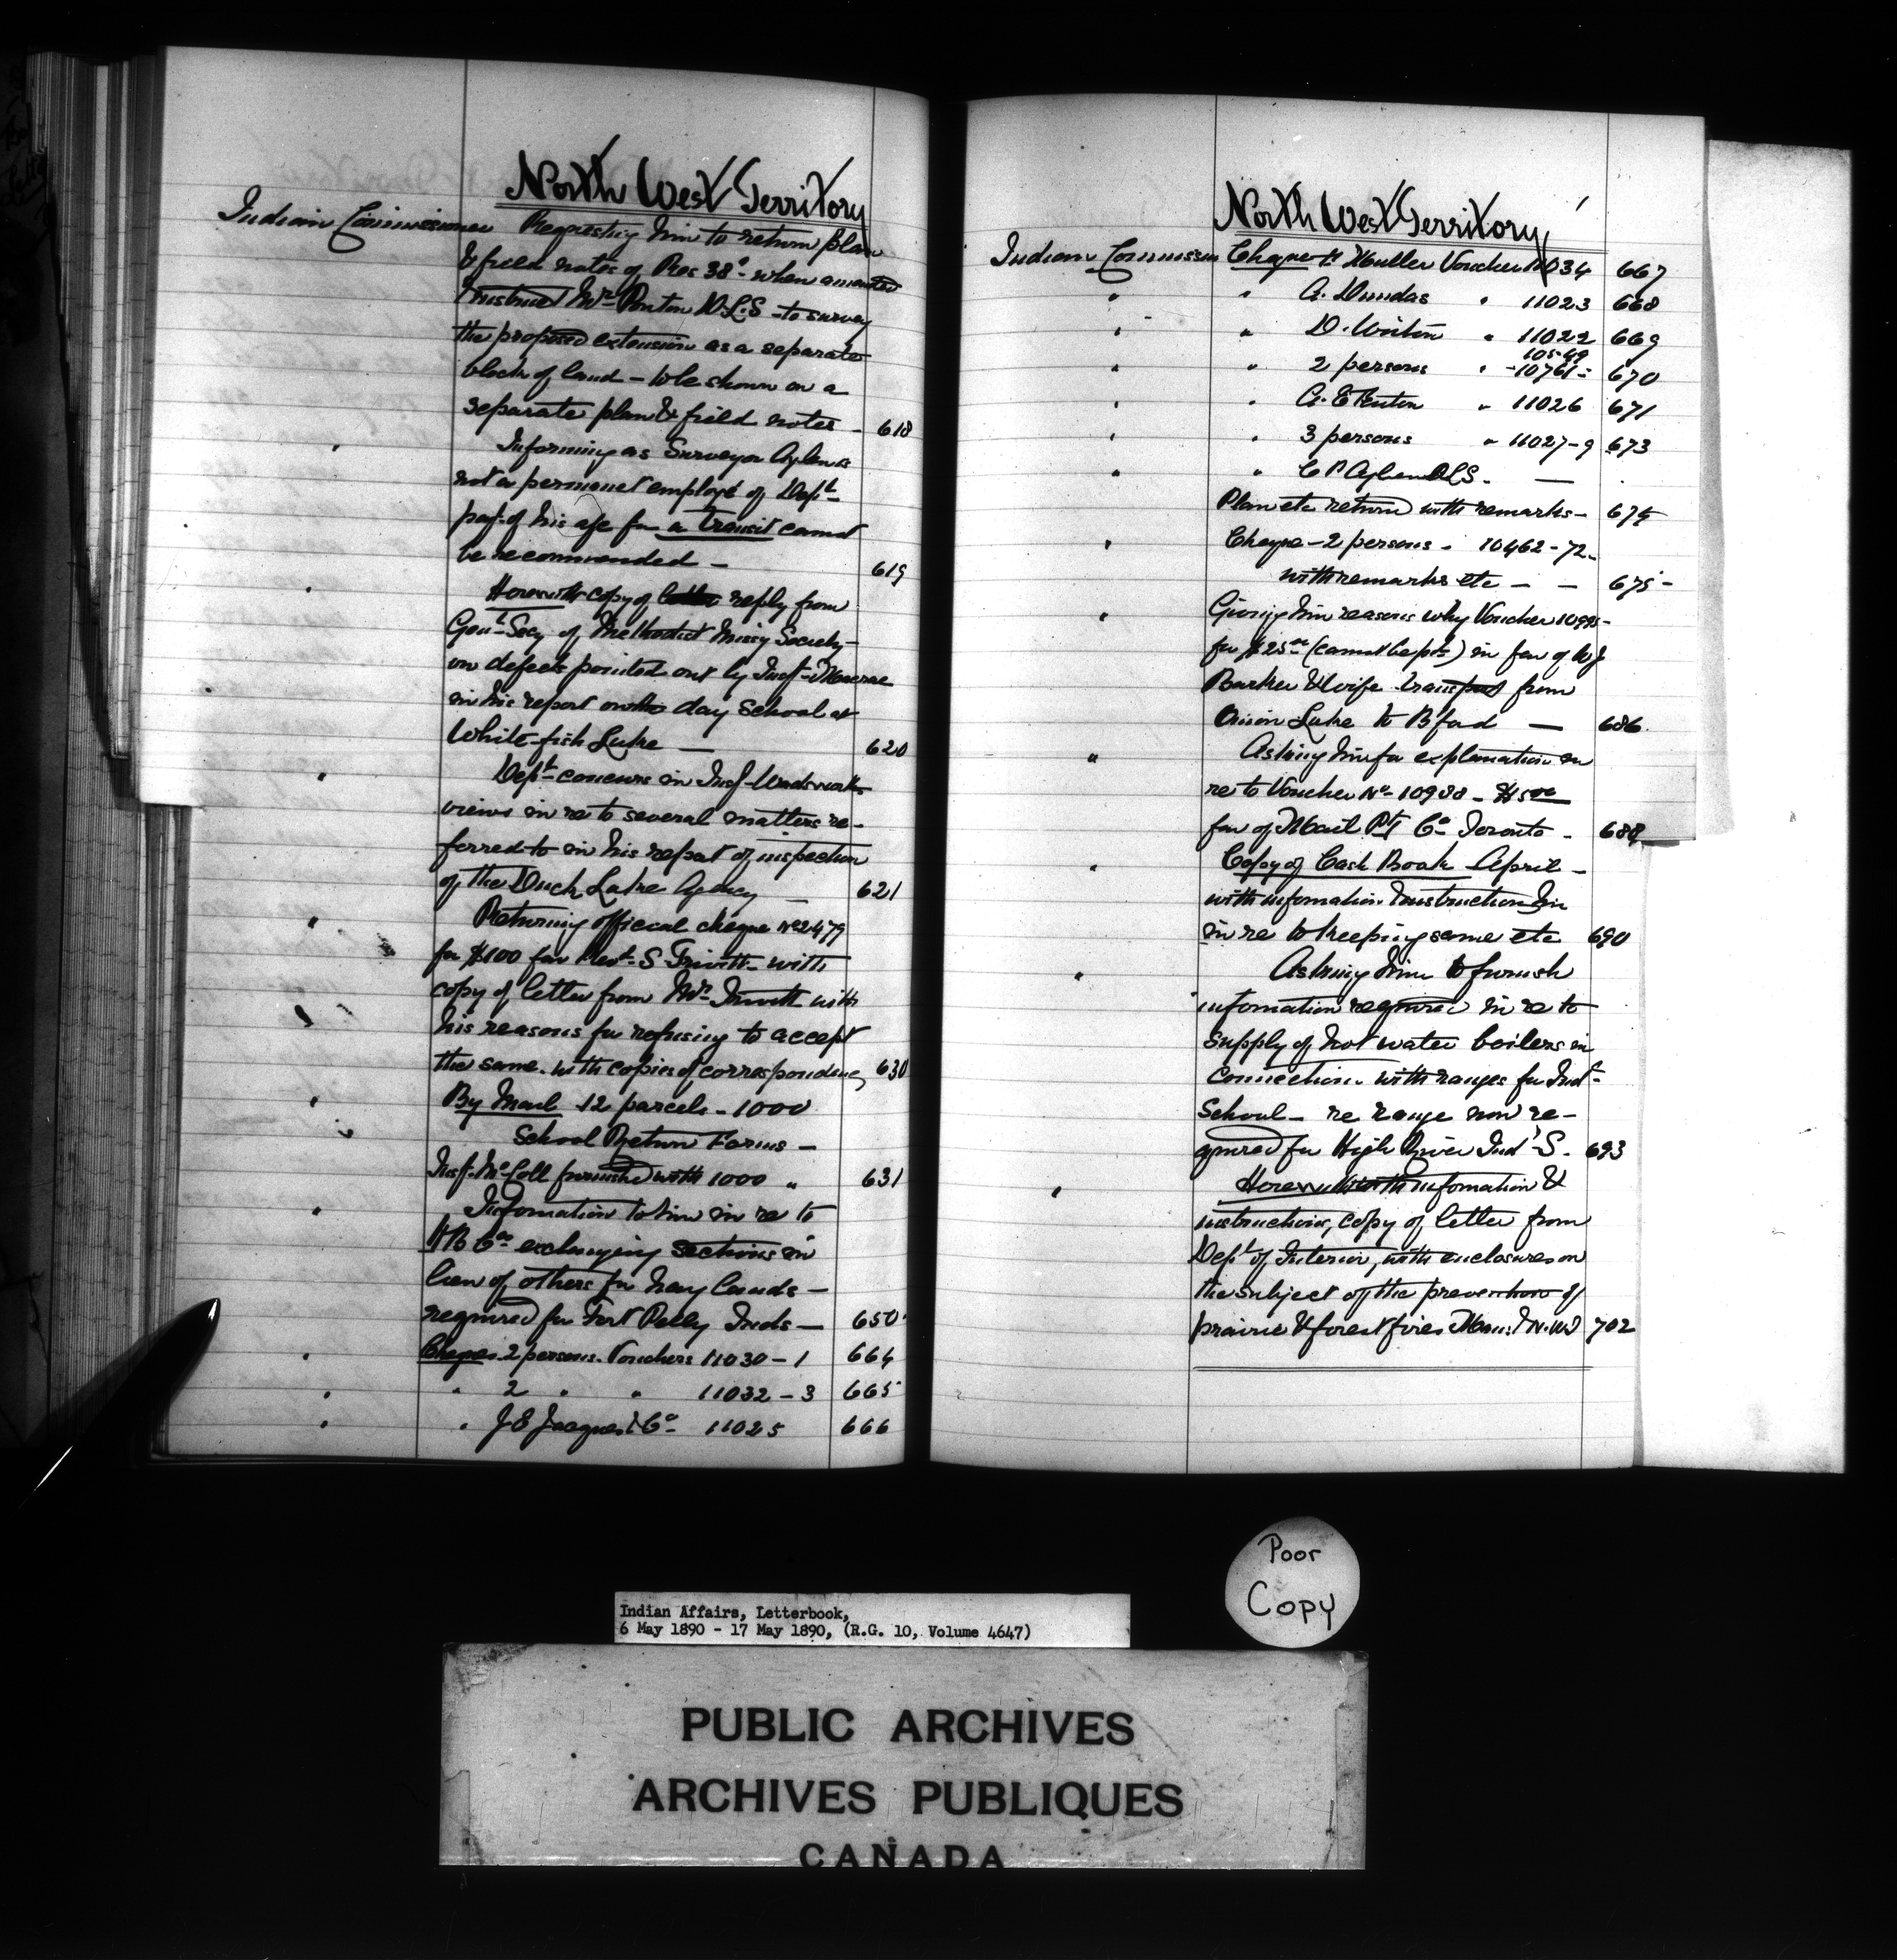 North West Territory
Indian Commissioner Requesting him to return plan
& field notes of Res 38a when amended
Instruct Mr Ponton D.L.S - to survey
the proposed extension as a separate
block of land - to be shown on a
separate plan & field notes - 618
" Informing as Surveyor Aylen is
not a permanent employé of Dept
payt of his a/c for a transit cannot
be recommended - 619
" Herewith copy of reply from
Genl Secy of Methodist Missy Society -
on defects pointed out by Insp
in his report on the day School at
White-fish Lake - 620
" Dept concurs in Insp Wadsworth
views in re to several matters re-
ferred to in his report of inspection
of the Duck Lake Agency - 621
" Returning official cheque No 2479
for $100 fav Revd S Trivett - with
copy of letter from Mr Trivett with
his reasons for refusing to accept
the same. with copies of correspondence, 630
" By Mail 12 parcels - 1000
School Return Forms -
Insp. McColl furnished with 1000 " 631
" Information to him in re to
H B Co exchanging sections in
lieu of others for hay lands -
required for Fort Pelly Inds - 650
" Cheques 2 persons. Vouchers 11030 - 1 664
" " 2 " " 11032 - 3 665
" " J E Jacques & Co - 11025 666
North West Territory
Indian Commissioner Cheque to Muller Voucher 11034 667
" " A. Dundas " 11023 668
" " D. " 11022 669
10549
" " 2 persons " - 10761 - 670
" " A. E " 11026 671
" " 3 persons " 11027-9 673
" " C P Aylen DLS. -
Plan etc returned with remarks - 674
" Cheque - 2 persons - 10462 - 72 -
with remarks etc - - 675 -
" Giving him reasons why Voucher
for $25 00 (cannot be pd) in fav of W J
Barker & wife transport from
Onion Lake to B'ford - 686
" Asking him for explanation in
re to Voucher No - 10988 - $5 00
fav of Mail Ptg Co Toronto - 688
" Copy of Cash Book April -
with information & instruction
in re to keeping same etc 690
" Asking him to furnish
information required in re to
supply of hot water boilers in
connection. with ranges for Indl
School - re range now re-
quired for High River Indl S. 693
" Herewith with information &
instruction, copy of letter from
Dept of Interior, with enclosures on
the subject of the prevention of
prairie & forest fires Man: & N.W.T 702
Poor
Copy
Indian Affairs, Letterbook,
6 May 1890 - 17 May 1890, (R.G. 10, Volume 4647)
PUBLIC ARCHIVES
ARCHIVES PUBLIQUES
CANADA